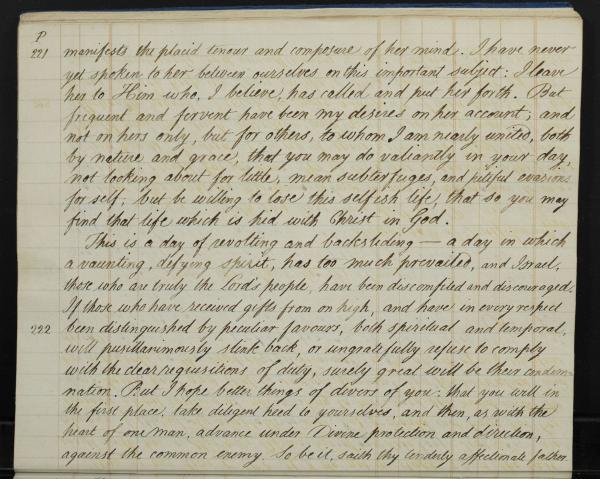 P
221 manifests the placid tenour and composure of her mind. I have never
yet spoken to her between ourselves on this important subject: I leave
her to Him who, I believe, has called and put her forth. But
frequent and fervent have been my desires on her account; and
not on hers only, but for others, to whom I am nearly united, both
by nature and grace, that you may do valiantly in your day,
not looking about for little, mean subterfuges, and pitiful evasions
for self; but be willing to lose this selfish life, that so you may
find that life which is hid with Christ in God.
This is a day of revolting and backsliding — a day in which
a vaunting, defying spirit, has too much prevailed, and Israel,
those who are truly the Lord's people, have been discomfited and discouraged.
If those who have received gifts from on high, and have in every respect
222 been distinguished by peculiar favours, both spiritual and temporal,
will pusillanimously slink back, or ungratefully refuse to comply
with the clear requisitions of duty, surely great will be their condem-
nation. But I hope better things of divers of you: that you will in
the first place, take diligent heed to yourselves, and then, as with the
heart of one man, advance under Divine protection and direction,
against the common enemy. So be it, saith thy tenderly affectionate father.